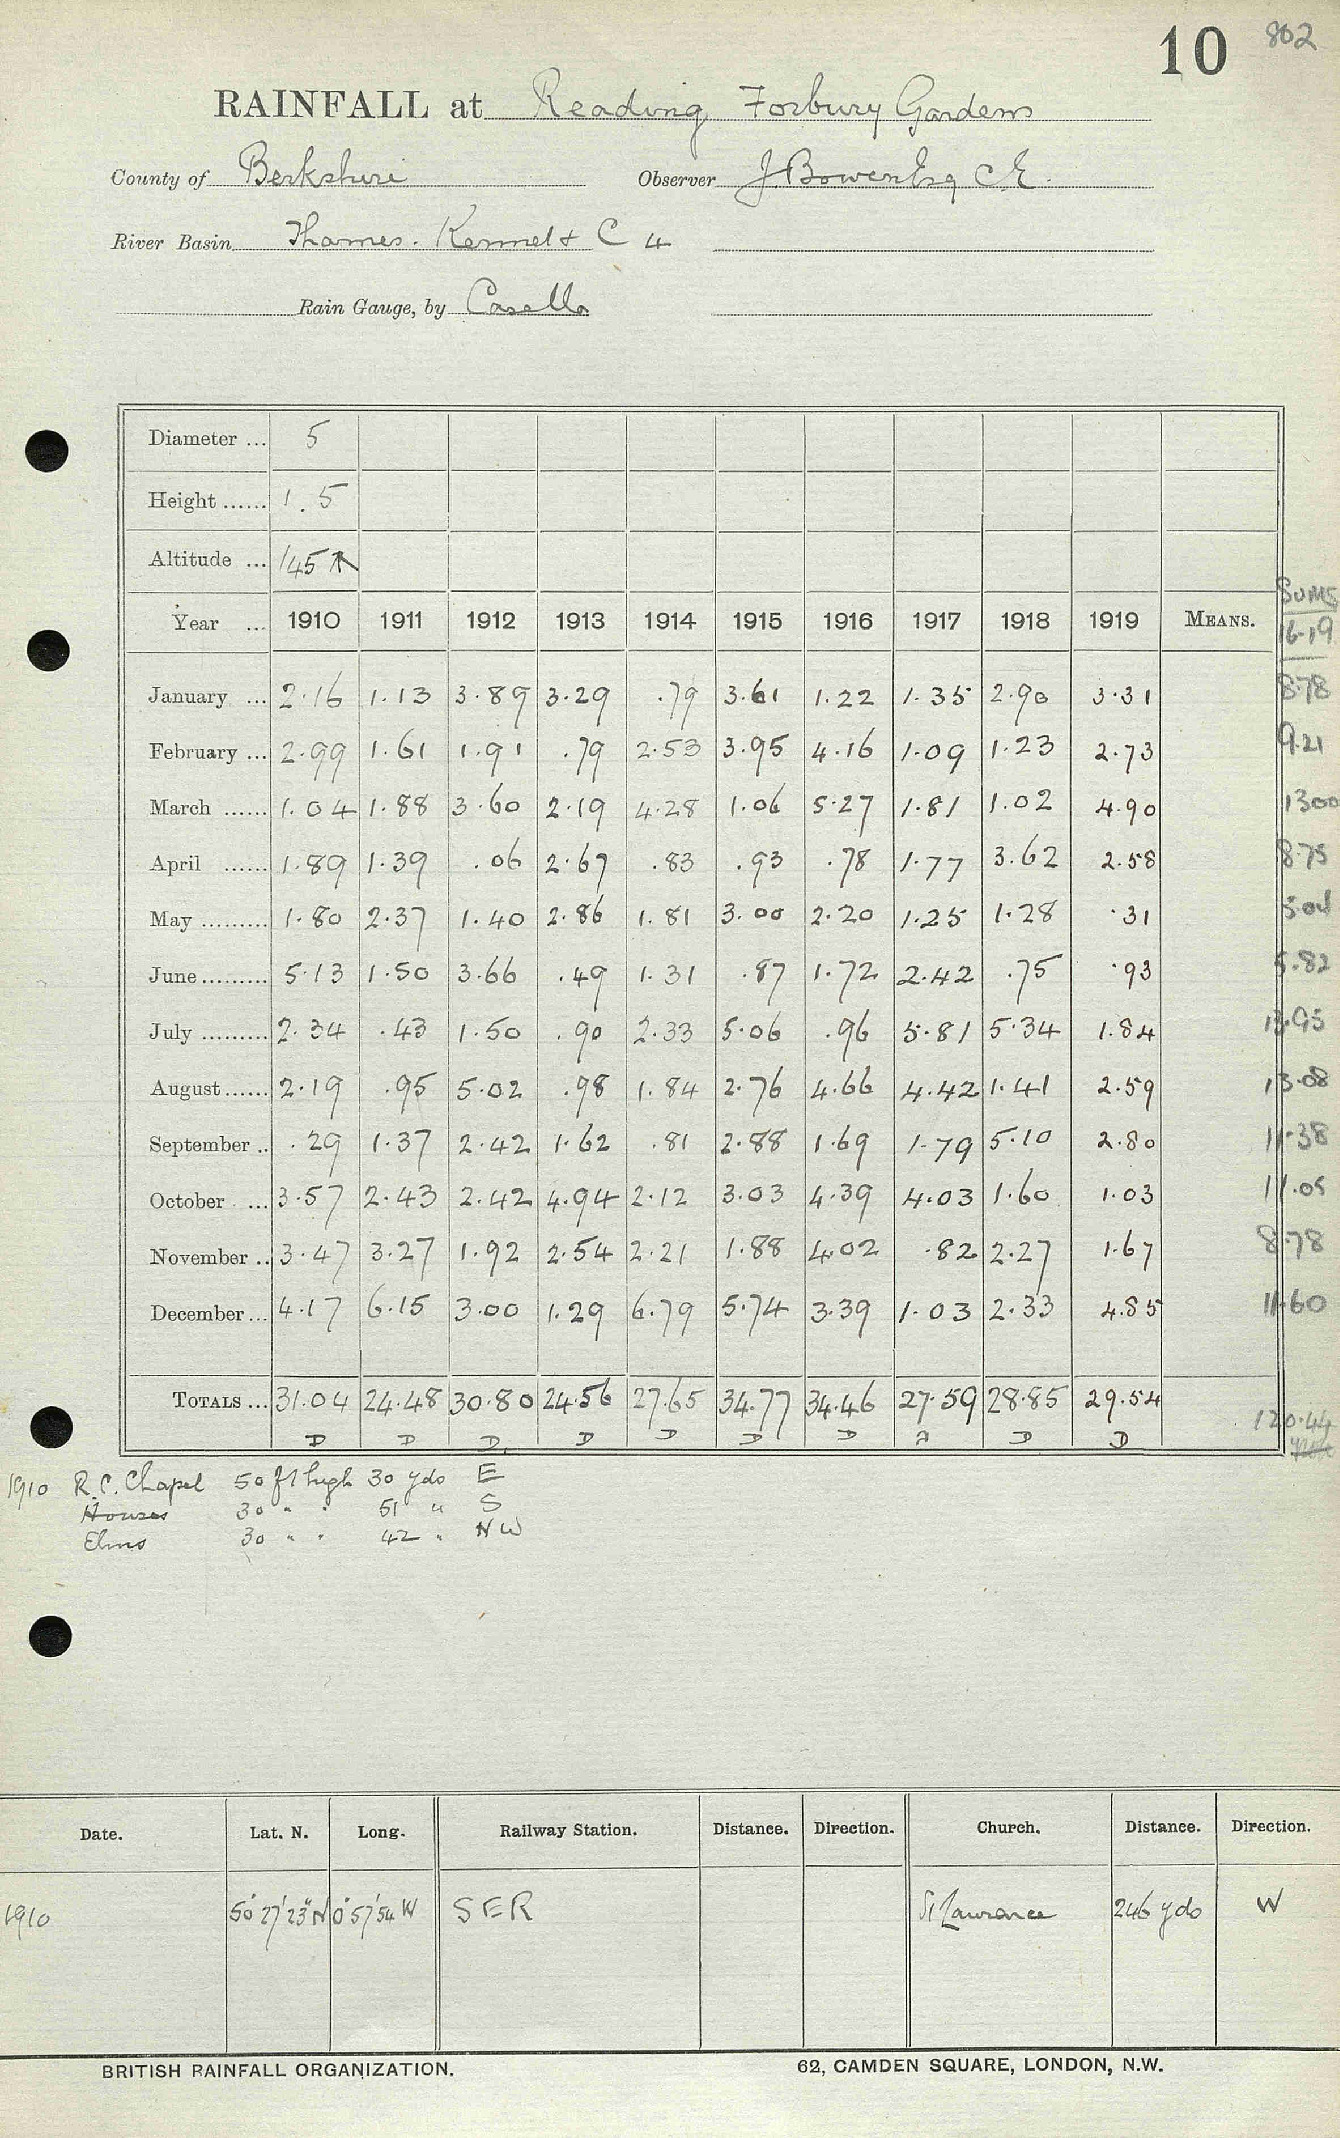 10 802
RAINFALL at Reading Forbury Gardens
County of Berkshire Observer J. Bowen Esq C.E.
River Basin Thames. Kennet & C 4
Rain Gauge, by Casella
Diameter ... 5
Height ...... 1.5
Altitude ... 145
Year ... 1910 1911 1912 1913 1914 1915 1916 1917 1918 1919 MEANS. SUMS 16-19
January ... 2.16 1.13 3.89 3.29 .79 3.61 1.22 1.35 2.90 3.31 8.78
February ... 2.99 1.61 1.91 .79 2.53 3.95 4.16 1.09 1.23 2.73 9.21
March ...... 1.04 1.88 3.60 2.19 4.28 1.06 5.27 1.81 1.02 4.90 1300
April ...... 1.89 1.39 .06 2.67 .83 .93 .78 1.77 3.62 2.58 8.75
May ......... 1.80 2.37 1.40 2.86 1.81 3.00 2.20 1.25 1.28 .31 5.04
June ......... 5.13 1.50 3.66 .49 1.31 .87 1.72 2.42 .75 .93 5.82
July ......... 2.34 .43 1.50 .90 2.33 5.06 .96 5.81 5.34 1.84 13.95
August ...... 2.19 .95 5.02 .98 1.84 2.76 4.66 4.42 1.41 2.59 13.08
September .. .29 1.37 2.42 1.62 .81 2.88 1.69 1.79 5.10 2.80 11.38
October ... 3.57 2.43 2.42 4.94 2.12 3.03 4.39 4.03 1.60 1.03 11.05
November .. 3.47 3.27 1.92 2.54 2.21 1.88 4.02 .82 2.27 1.67 8.78
December ... 4.17 6.15 3.00 1.29 6.79 5.74 3.39 1.03 2.33 4.85 11.60
TOTALS ... 31.04 24.48 30.80 24.56 27.65 34.77 34.46 27.59 28.85 29.54 120.44
D D D D D D D D D
1910 R.C. Chapel 50 ft high 30 yds E
Houses 30 " " 51 " S
Elms 30 " " 42 " NW
Date. Lat. N. Long. Railway Station. Distance. Direction. Church. Distance. Direction.
1910 50°27'23"N 0°57'54 W SER St Lawrance 246 yds W
BRITISH RAINFALL ORGANIZATION. 62, CAMDEN SQUARE, LONDON, N.W.